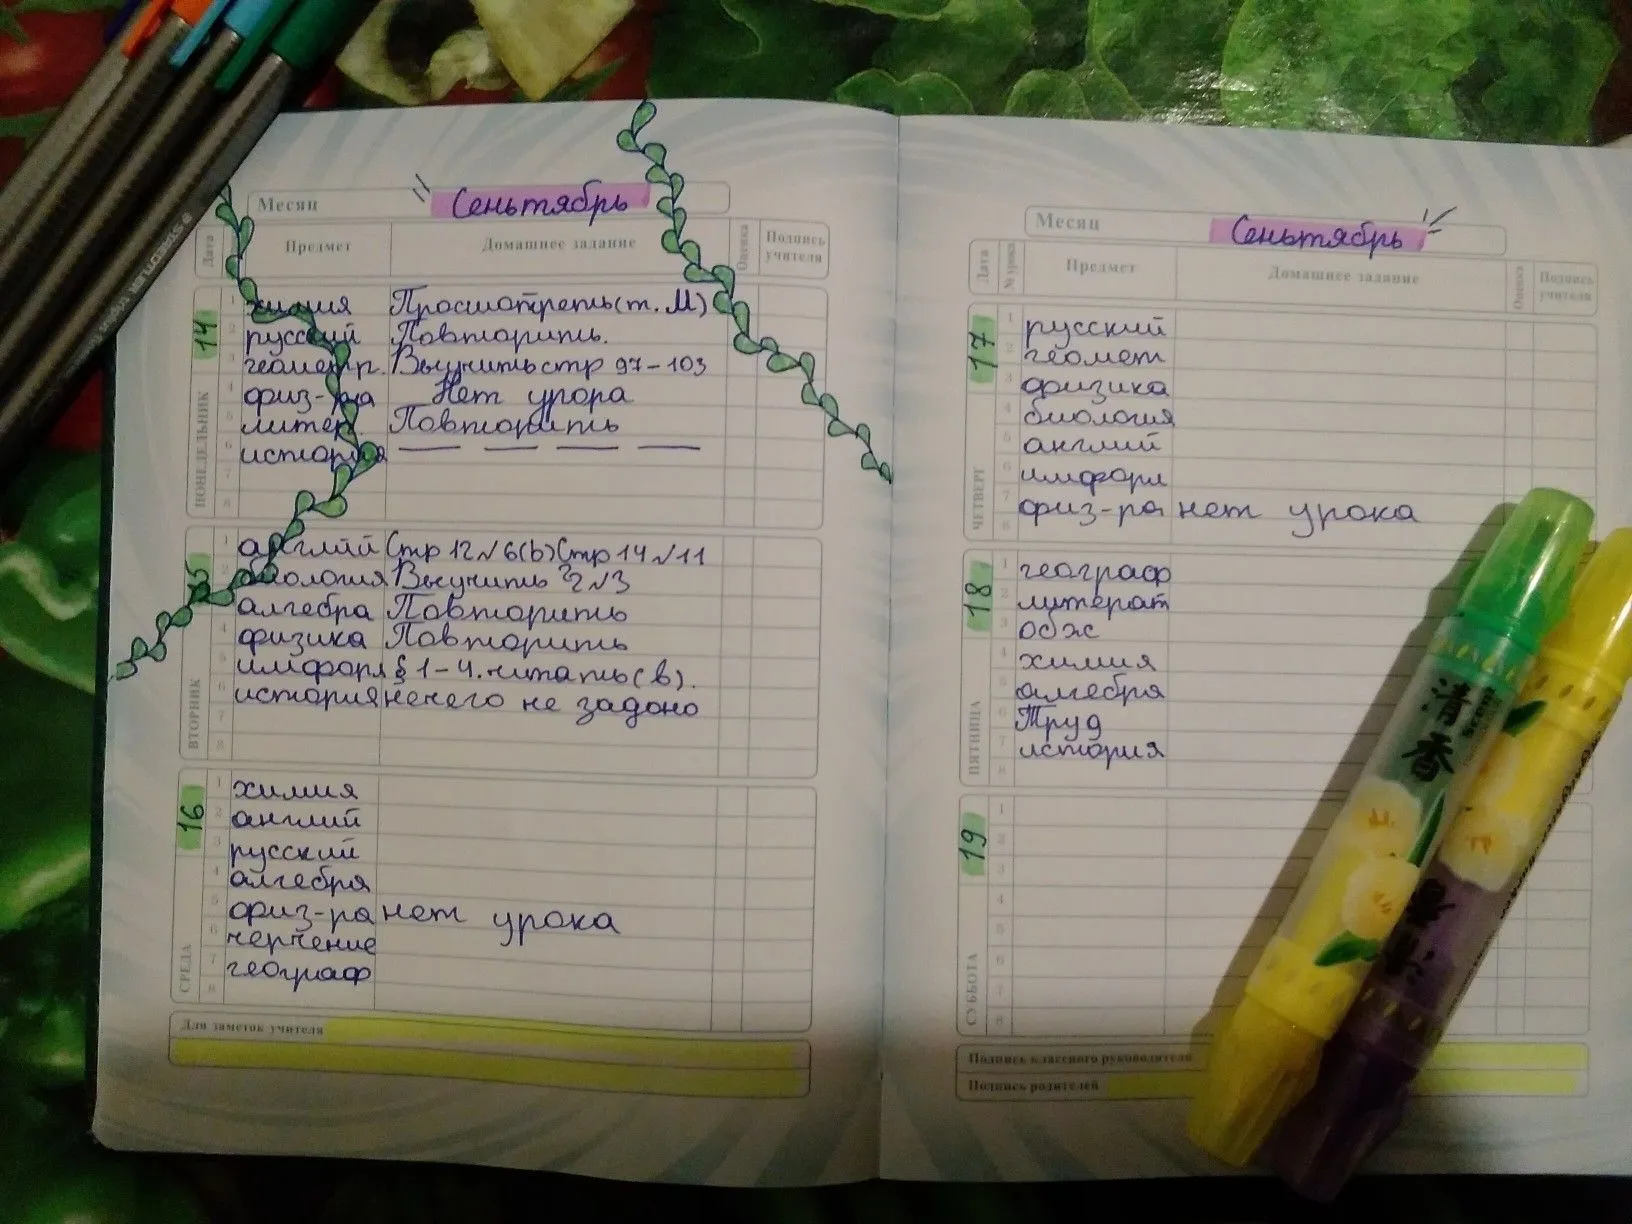 Месяц Сеньтябрь
Дата Предмет Домашнее задание Оценка Подпись учителя
14 ПОНЕДЕЛЬНИК
1 химия Просмотреть (т. М)
2 русский Повторить.
3 геометр. Выучить стр 97-103
4 физ-ра Нет урора
5 литер. Повторить
6 история — — — —
7
8
15 ВТОРНИК
1 англий Стр 12 №6(b) Стр 14 №11
2 биология Выучить §2 №3
алгебра Повторить
4 физика Повторить
5 информ § 1-4. читать (в).
6 история нечего не задоно
7
8
16 СРЕДА
1 химия
2 англий
3 русский
4 алгебра
5 физ-ра нет урока
6 черчение
7 географ
8
Для заметок учителя
Месяц Сеньтябрь
Дата № урока Предмет Домашнее задание Оценка Подпись учителя
17 ЧЕТВЕРГ
1 русский
2 геомет
3 физика
4 биология
5 англий
6 информ
7 физ-ра нет урока
8
18 ПЯТНИЦА
1 географ
2 литерат
3 обж
4 химия
5 алгебра
6 Труд
7 история
8
19 СУББОТА
1
2
3
4
5
6
7
8
Подпись классного руководителя
Подпись родителей
清香